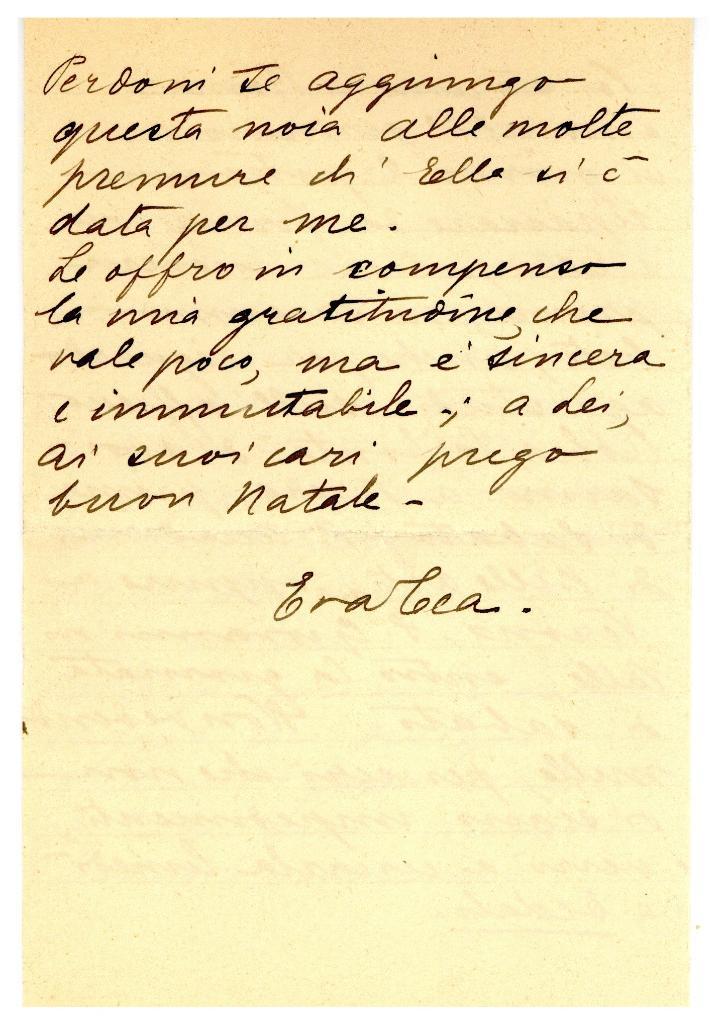 Perdoni se aggiungo
questa noia alle molte
premure ch' Ella si è
data per me.
Le offro in compenso
la mia gratitudine, che
vale poco, ma è sincera
e immutabile -; a Lei,
ai suoi cari prego
buon Natale -
Eva Tea.